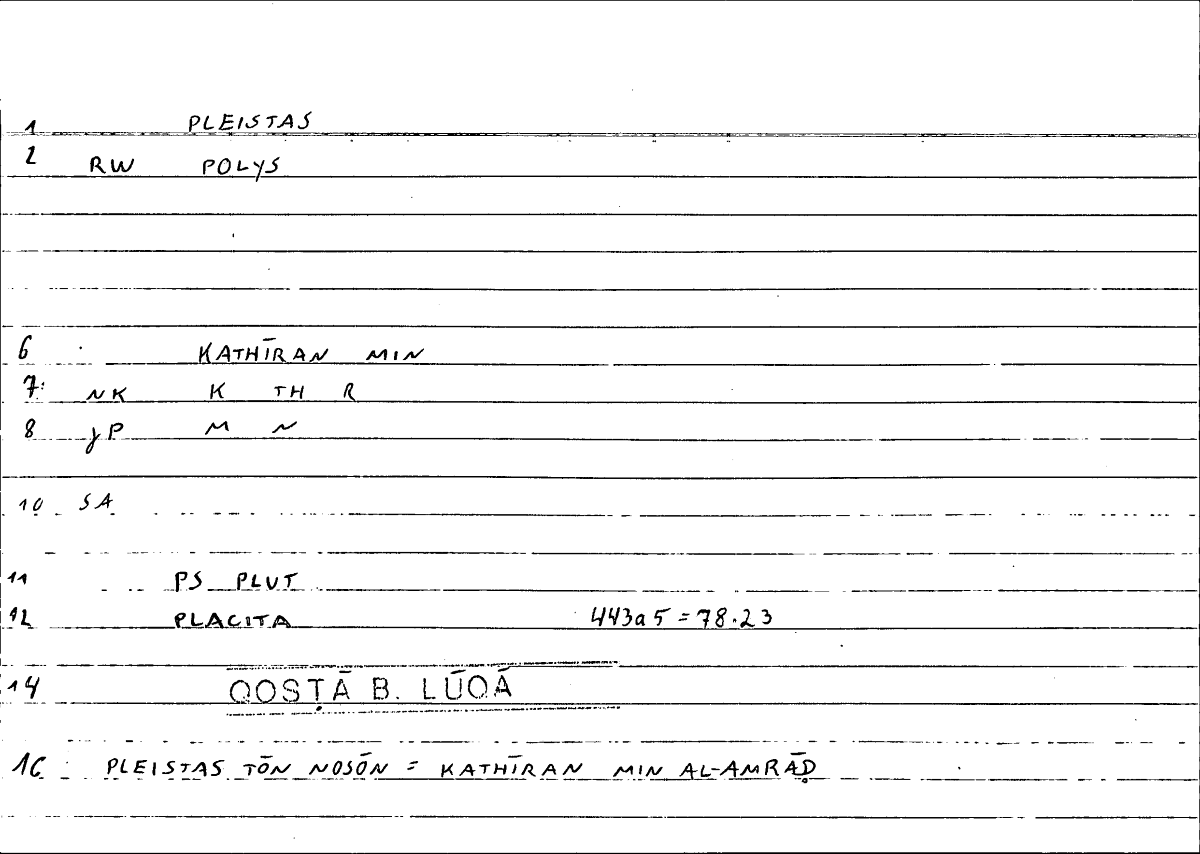 1 PLEISTAS
2 RW POLYS
6 KATHĪRAN MIN
7 NK K TH R
8 JP M N
10 SA
11 PS PLUT
12 PLACITA 443a5 = 78.23
14 QOSṬĀ B. LŪQĀ
16 PLEISTAS TŌN NOSŌN = KATHĪRAN MIN AL-AMRĀḌ